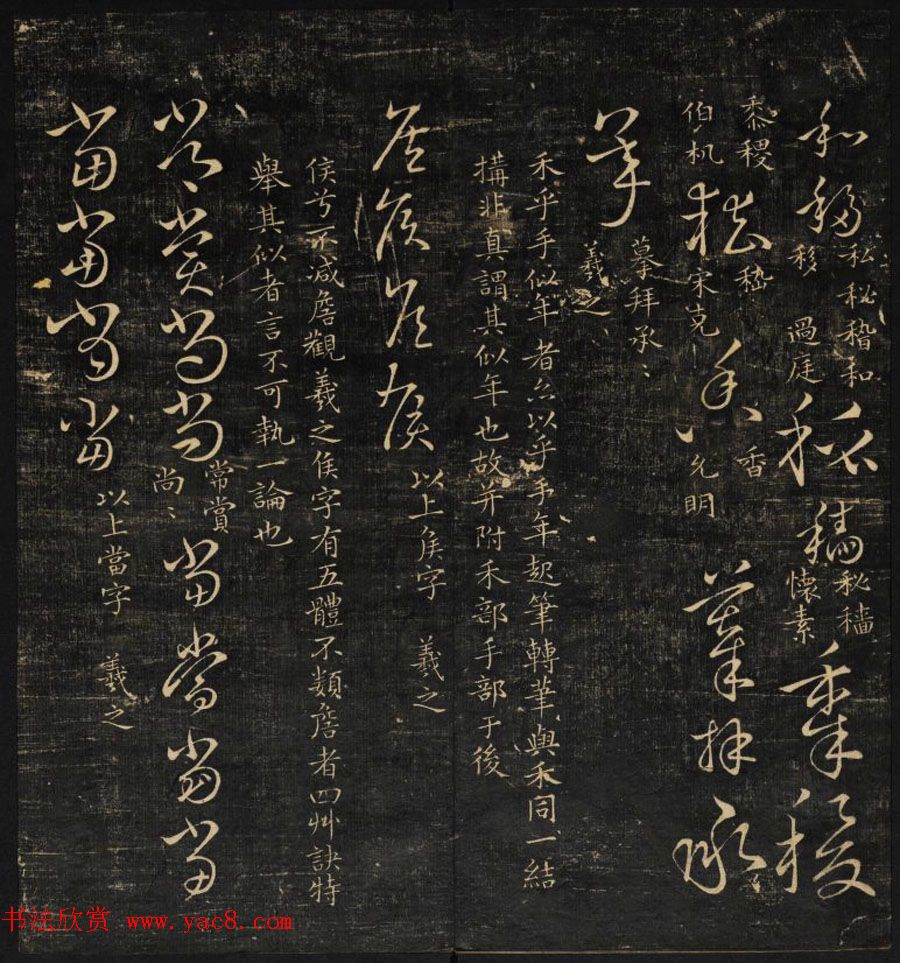 和 移 稻 穡 黍 稷
私秘稽和
移 過庭
秘穡
懷素
黍稷
伯机
嵇
宋克
香
允明
拜 承
摹拜承
羲之
禾乎手似年者亦以乎手年起筆轉筆與禾同一結
搆非真謂其似年也故并附禾部手部于後
侯 侯
以上侯字 羲之
侯兮不减詹觀羲之侯字有五體不類詹者四艸訣特
舉其似者言不可執一論也
常 賞 尚 尚 當 當 當 當
常賞
尚
當 當 當 當
以上當字 羲之
书法欣赏 www.yac8.com